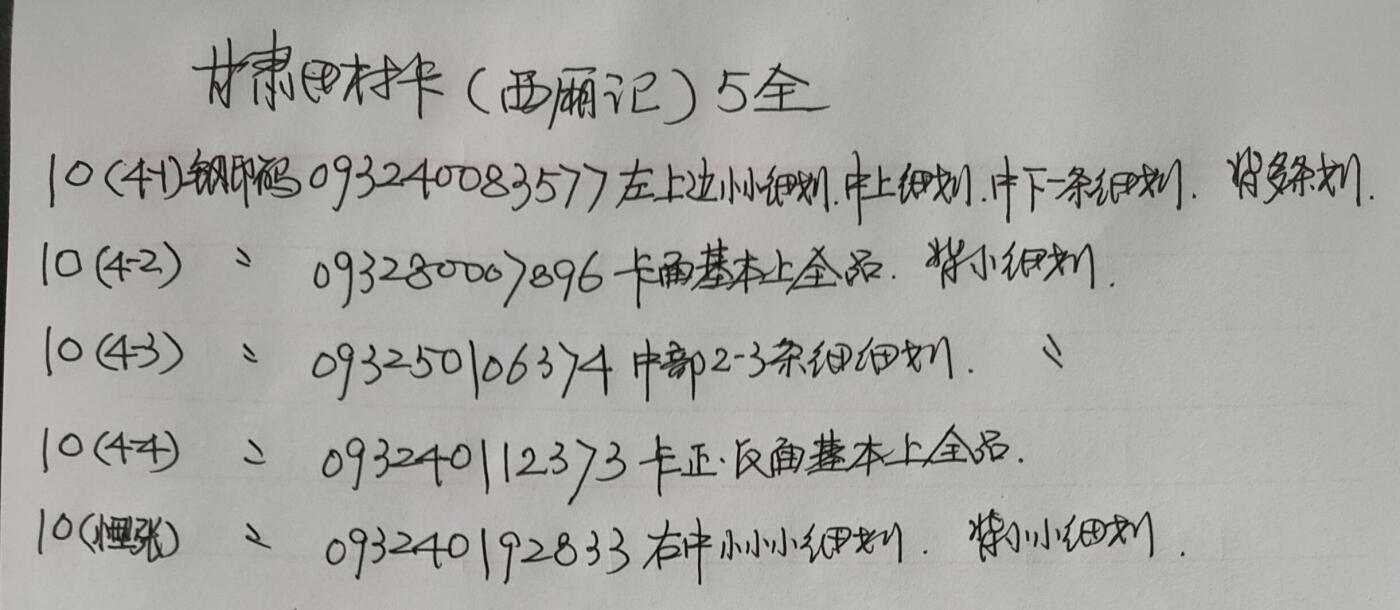 甘肃田村卡（西厢记）5全
10(4-1)钢印码093240083577左上边小小细划.中上细划.中下一条细划. 背多条划.
10(4-2) 〃 093280007896卡面基本上全品. 背小细划.
10(4-3) 〃 093250106374中部2-3条细细划. 〃
10(4-4) 〃 093240112373卡正.反面基本上全品.
10(张) 〃 093240192833右中小小小细划. 背小小细划.